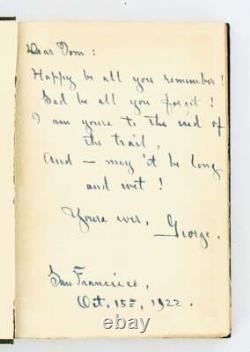 Dear Dom:
Happy be all you remember!
Sad be all you forgit!
I am yours to the end of
the trail,
And — may 't be long
and wet!
Yours ever,
George.
San Francisco,
Oct. 15t, 1922.
ebay